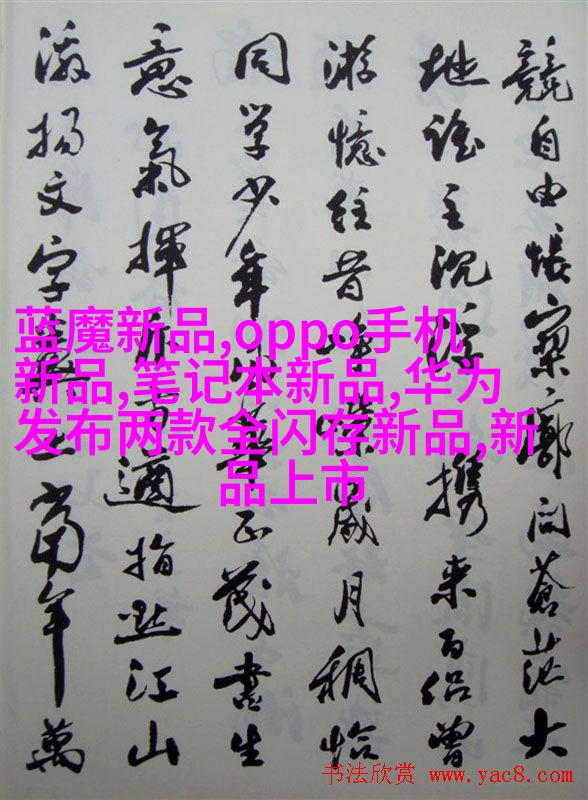 競自由悵寥廓问蒼茫大
地谁主沉浮携来百侣曾
游憶往昔峥嵘歲月稠恰
同学少年風華正茂書生
意氣揮斥方遒指點江山
激揚文字糞土當年萬
蓝魔新品,oppo手机
新品,笔记本新品,华为
发布两款全闪存新品,新
品上市
书法欣赏 www.yac8.com